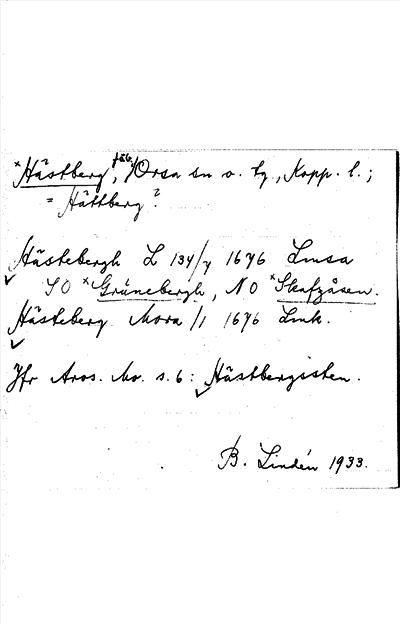 ×Hästberg, fäb., Orsa sn o. tg., Kopp. l.;
= Hättberg?
Hästebergh L 134/7 1676 Lmsa
SO ×Grånebergh, NO ×Skafzåsen.
Hästeberg Mora /1 1676 Lmk.
Jfr Aros. Mo. s. 6: Hästbergsten.
B. Lindén 1933.